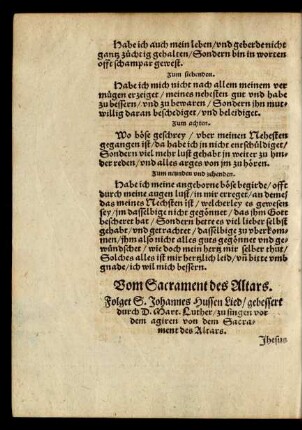 Habe ich auch mein leben/vnd geberde nicht
gantz züchtig gehalten/Sondern bin in worten
offt schampar gewest.
Zum siebenden.
Habe ich mich nicht nach allem meinem ver
mügen erzeiget/meines nehesten gut vnd habe
zu bessern/vnd zu bewaren/Sondern ihn mut-
willig daran beschediget/vnd beleidiget.
Zum achten.
Wo böse geschrey/vber meinen Nehesten
gegangen ist/da habe ich in nicht entschüldiget/
Sondern viel mehr lust gehabt jn weiter zu hin-
der reden/vnd alles arges von jm zu hören.
Zum neunden vnd zehenden.
Habe ich meine angeborne böse begirde/offt
durch meine augen lust/in mir erreget/an deme/
das meines Nehsten ist/welcherley es gewesen
sey/jm dasselbige nicht gegönnet/das jhm Gott
bescheret hat/Sondern hette es viel lieber selbst
gehabt/vnd getrachtet/dasselbige zu vberkom-
men/jhm also nicht alles guts gegönnet vnd ge-
wündschet/wie doch mein hertz mir selber thut/
Solches alles ist mir hertzlich leid/vñ bitte vmb
gnade/ich wil mich bessern.
Vom Sacrament des Altars.
Folget S. Johannes Hussen Lied/gebessert
durch D. Mart. Luther/zu singen vor
dem agiren von dem Sacra-
ment des Altars.
Jhesus